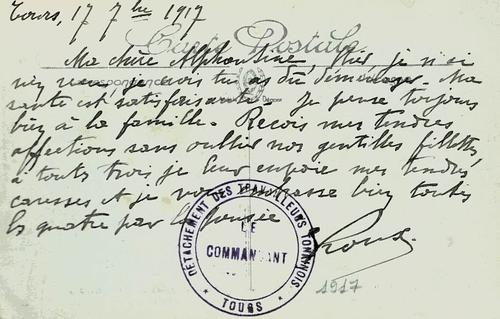 Tours, 17 7bre 1917
Carte Postale
Ma chère Alphonsine, Hier, je n'ai
rien reçu, je crois tu as dû déménager. Ma
Correspondance
santé est satisfaisante. Je pense toujours
bien à la famille. Reçois mes tendres
affections sans oublier nos gentilles fillettes,
à toutes trois je leur envoie mes tendres
caresses et je vous embrasse bien toutes
les quatre par la pensée
DÉTACHEMENT DES TRAVAILLEURS TONKINOIS
LE
COMMANDANT
* TOURS *
1917